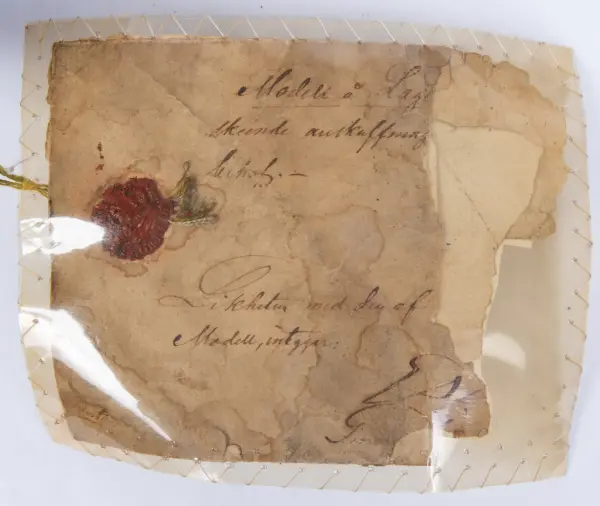 Modell å Lag
skeende anskaffning
Likheten med den af
Modell, intygar: